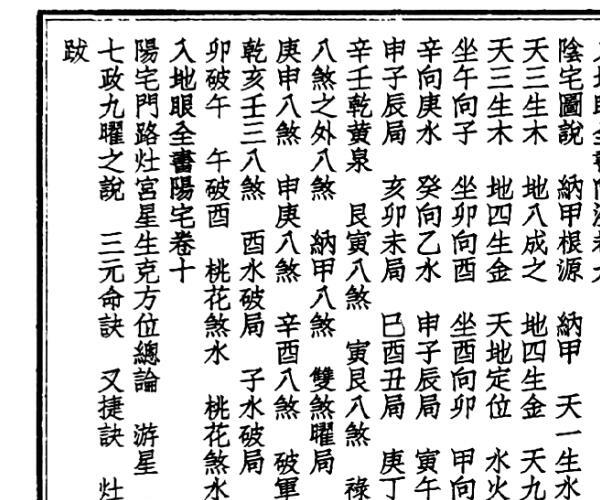 陰宅圖說　納甲根源　納甲　天一生水
天三生木　地八成之　地四生金　天九
天三生木　地四生金　天地定位　水火
坐午向子　坐卯向酉　坐酉向卯　甲向
辛向庚水　癸向乙水　申子辰局　寅午
申子辰局　亥卯未局　巳酉丑局　庚丁
辛壬乾黄泉　艮寅八煞　寅艮八煞　祿
八煞之外八煞　納甲八煞　雙煞曜局
庚申八煞　申庚八煞　辛酉八煞　破軍
乾亥壬三八煞　酉水破局　子水破局
卯破午　午破酉　桃花煞水　桃花煞水
入地眼全書陽宅卷十
陽宅門路灶宮星生克方位總論　游星
七政九曜之說　三元命訣　又捷訣　灶
跋